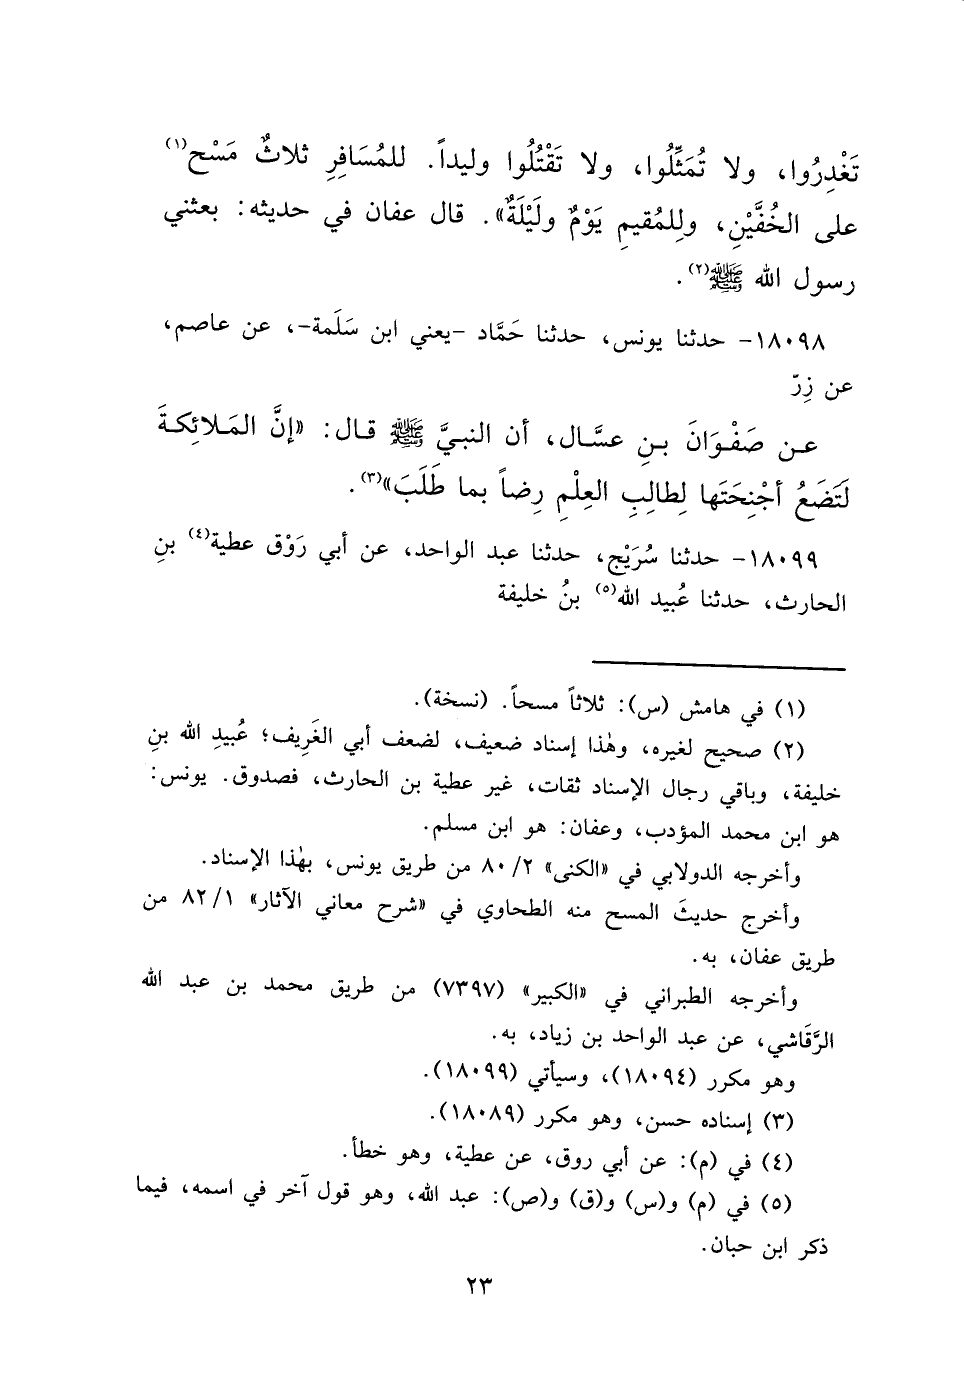 تَغْدِرُوا، ولا تُمَثِّلُوا، ولا تَقْتُلُوا وليداً. للمُسَافِرِ ثلاثٌ مَسْح(١)
على الخُفَّيْنِ، ولِلمُقيمِ يَوْمٌ ولَيْلَةٌ». قال عفان في حديثه: بعثني
رسول الله ﷺ(٢).
١٨٠٩٨- حدثنا يونس، حدثنا حَمَّاد -يعني ابن سَلَمة-، عن عاصم،
عن زِرّ
عـن صَفْوَانَ بـنِ عسَّـال، أن النبـيَّ ﷺ قـال: «إنَّ المَـلائِكـةَ
لَتَضَعُ أجْنِحَتَها لِطالِبِ العِلْمِ رِضاً بما طَلَبَ»(٣).
١٨٠٩٩- حدثنا سُرَيْج، حدثنا عبد الواحد، عن أبي رَوْق عطية(٤) بنِ
الحارث، حدثنا عُبيد الله(٥) بنُ خليفة
(١) في هامش (س): ثلاثاً مسحاً. (نسخة).
(٢) صحيح لغيره، وهٰذا إسناد ضعيف، لضعف أبي الغَرِيف؛ عُبيدِ الله بنِ
خليفة، وباقي رجال الإسناد ثقات، غير عطية بن الحارث، فصدوق. يونس:
هو ابن محمد المؤدب، وعفان: هو ابن مسلم.
وأخرجه الدولابي في «الكنى» ٢/ ٨٠ من طريق يونس، بهٰذا الإسناد.
وأخرج حديثَ المسح منه الطحاوي في «شرح معاني الآثار» ١/ ٨٢ من
طريق عفان، به.
وأخرجه الطبراني في «الكبير» (٧٣٩٧) من طريق محمد بن عبد الله
الرَّقَاشي، عن عبد الواحد بن زياد، به.
وهو مكرر (١٨٠٩٤)، وسيأتي (١٨٠٩٩).
(٣) إسناده حسن، وهو مكرر (١٨٠٨٩).
(٤) في (م): عن أبي روق، عن عطية، وهو خطأ.
(٥) في (م) و(س) و(ق) و(ص): عبد الله، وهو قول آخر في اسمه، فيما
ذكر ابن حبان.
٢٣